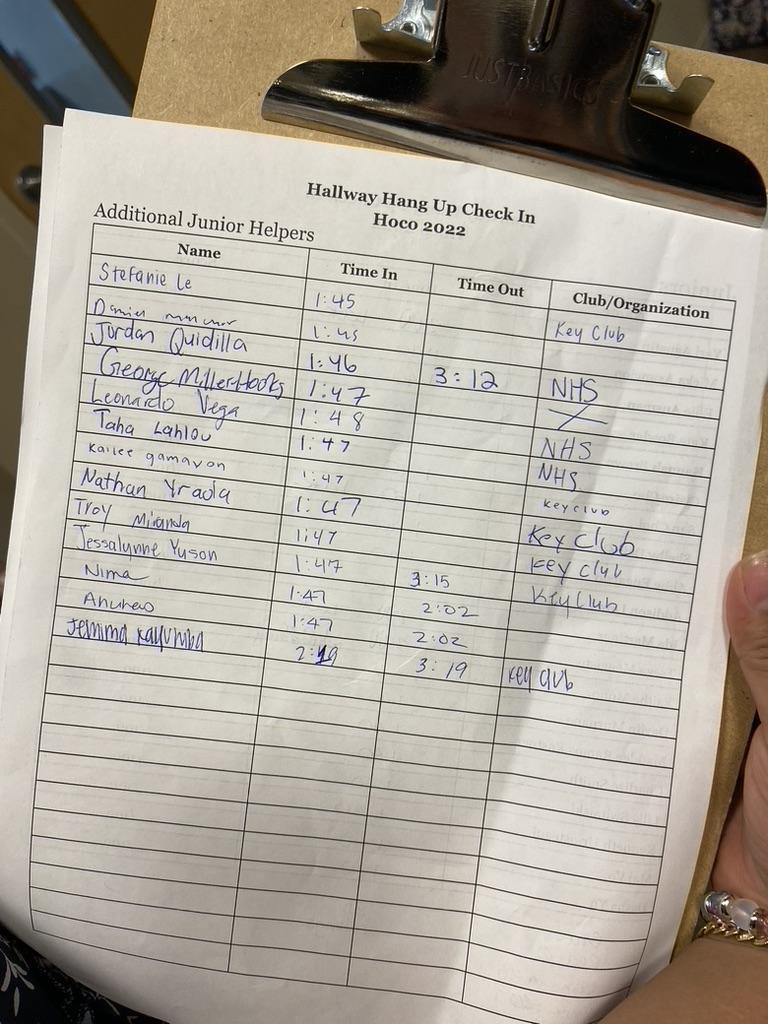 JUSTBASICS
Hallway Hang Up Check In
Hoco 2022
Additional Junior Helpers
Name Time In Time Out Club/Organization
Stefanie Le 1:45 Key Club
1:45
Jordan Quidilla 1:46 3:12 NHS
George MillerHooks 1:47 X
Leonardo Vega 1:48 NHS
Taha Lahlou 1:47 NHS
Kailee gamavon 1:47 key club
Nathan Yraola 1:47 Key Club
Troy Miranda 1:47 key club
Jessalynne Yuson 1:47 3:15 Key Club
Nima 1:47 2:02
Andrew 1:47 2:02
Jemima Kayumba 2:19 3:19 key club